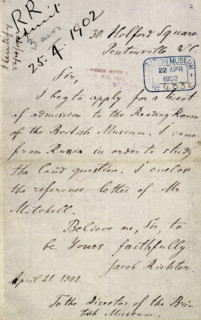 R R
3 ans
25.4.1902
30 Holford Square
Pentonville W.C.
BRITISH MUSEUM
22 APR
1902
Sir,
I beg to apply for a ticket
of admission to the Reading Room
of the British Museum. I came
from Russia in order to study
the land question. I enclose
the reference letter of Mr
Mitchell.
Believe me, Sir, to
be Yours faithfully
Jacob Richter
April 21. 1902
To the Director of the Bri-
tish Museum.